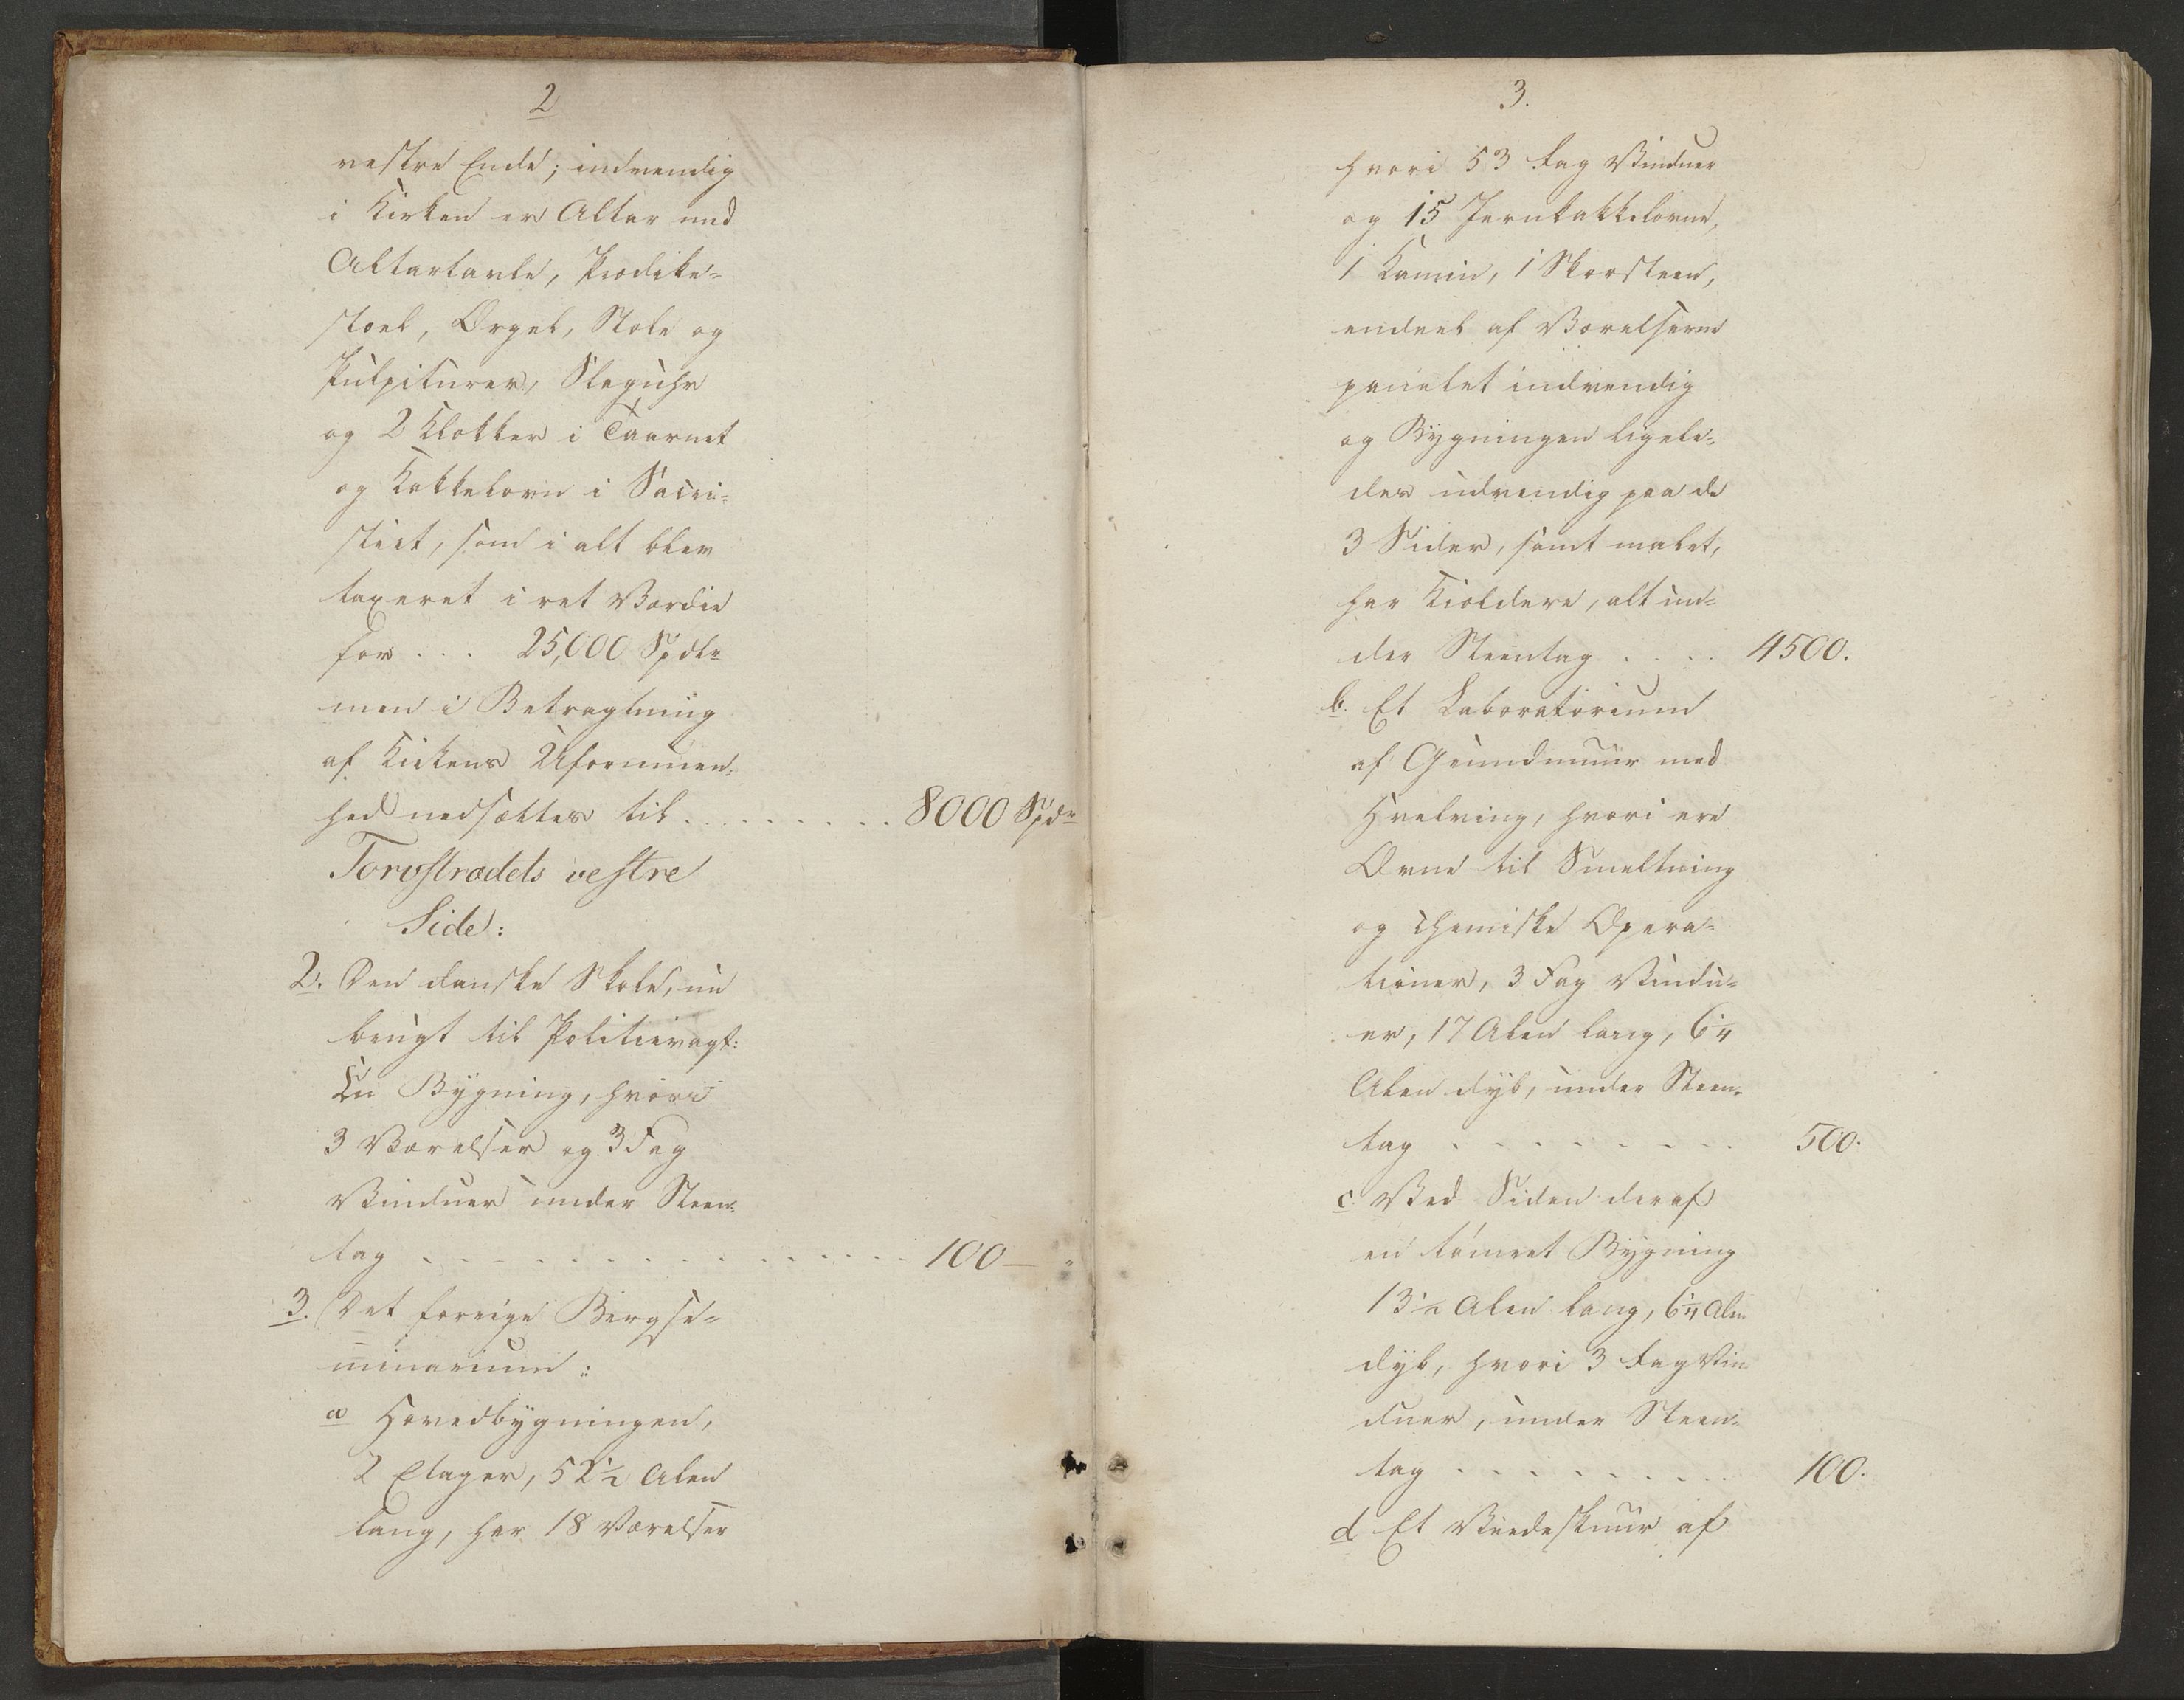 2
vestre Ende; indvendig
i Kirken er Altar med
Altartavle, Prædike-
stoel, Orgel, Stole og
Pulpiturer, Slaguhr
og 2 Klokker i Taarnet
og Kakkelovn i Sacri-
stiet, som i alt blev
taxeret i ret Værdie
for ... 25,000 Spdlr
men i Betragtning
af Kirkens Ufornuen-
hed nedsættes til ......... 8000 Spdr
Torvstrædets vestre
Side:
2. Den danske Skole, nu
brugt til Politievagt:
En Bygning, hvori
3 Værelser og 3 Fag
Vinduer under Steen-
tag ................ 100 — "
3. Det forrige Bergse-
minarium:
a Hovedbygningen,
2 Etager, 52 1/2 Alen
lang, har 18 Værelser
3.
hvori 53 Fag Vinduer
og 15 Jernkakkelovne,
1 Kamin, 1 Skorsteen,
endeel af Værelserne
panelet indvendig
og Bygningen ligele-
des udvendig paa de
3 Sider, samt malet,
har Kieldere, alt un-
der Steentag .... 4500.
b. Et Laboratorium
af Grundmuur med
Hvelving, hvori ere
Ovne til Smeltning
og chemiske Opera-
tioner, 3 Fag Vindu-
er, 17 Alen lang, 6 1/4
Alen dyb, under Steen-
tag ......... 500.
c. Ved Siden deraf
en tømret Bygning
13 1/2 Alen lang, 6 1/4 Alen
dyb, hvori 3 Fag Vin-
duer, under Steen-
tag ......... 100.
d Et Veedeskuur af